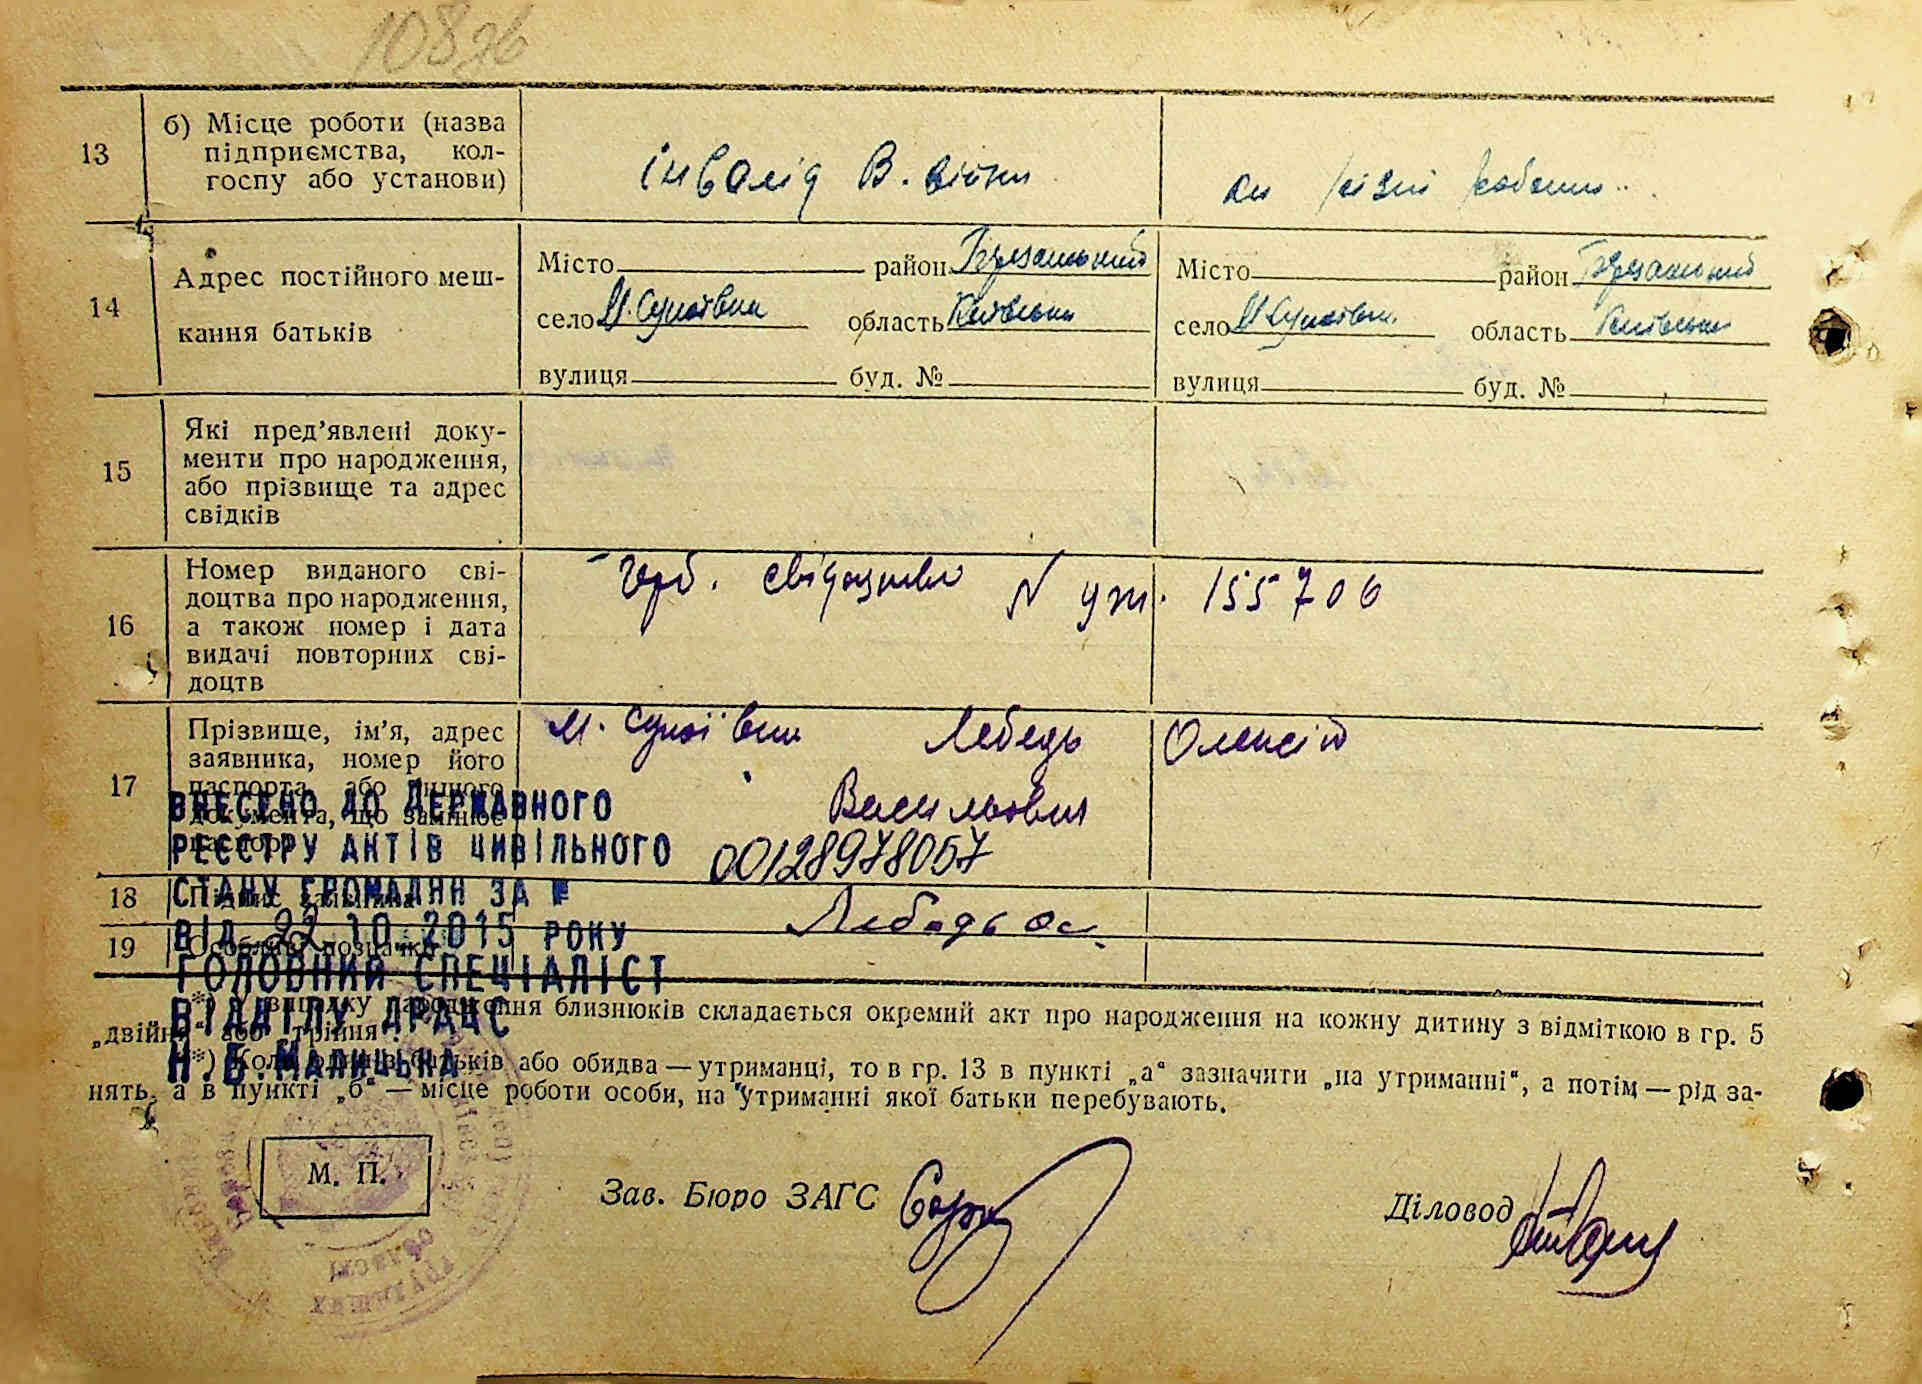 108зв
13
б) Місце роботи (назва
підприємства, кол-
госпу або установи)
інвалід В. війни
на різні роботи
14
Адрес постійного меш-
кання батьків
Місто район Березанський
село М. Супоївка область Київська
вулиця буд. №
Місто район Березанський
село М. Супоївка область Київська
вулиця буд. №
15
Які пред’явлені доку-
менти про народження,
або прізвище та адрес
свідків
16
Номер виданого сві-
доцтва про народження,
а також номер і дата
видачі повторних сві-
доцтв
герб. свідоцтво N 155706
17
Прізвище, ім’я, адрес
заявника, номер його
паспорта, або іншого
документа, що замінює
паспорт
М. Супоївка Лебедь Олексій
Васильович
ВНЕСЕНО ДО ДЕРЖАВНОГО
РЕЄСТРУ АКТІВ ЦИВІЛЬНОГО
СТАНУ ГРОМАДЯН ЗА №
00128978057
ВІД 22.10.2015 РОКУ
ГОЛОВНИЙ СПЕЦІАЛІСТ
ВІДДІЛУ ДРАЦС
Н.Б.МАЛИЦЬКА
18
Підпис заявника
Лебедь Ол.
19
Особливі позначки
*) У випадку народження близнюків складається окремий акт про народження на кожну дитину з відміткою в гр. 5
„двійня“ або „трійня“.
**) Коли один з батьків або обидва — утриманці, то в гр. 13 в пункті „а“ зазначити „на утриманні“, а потім — рід за-
нять, а в пункті „б“ — місце роботи особи, на утриманні якої батьки перебувають.
М. П.
Зав. Бюро ЗАГС
Діловод